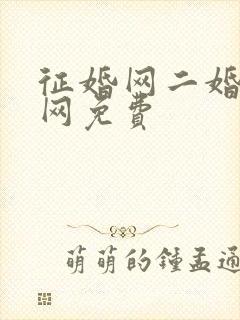 征婚网二婚
网免费
萌萌的鍾孟通